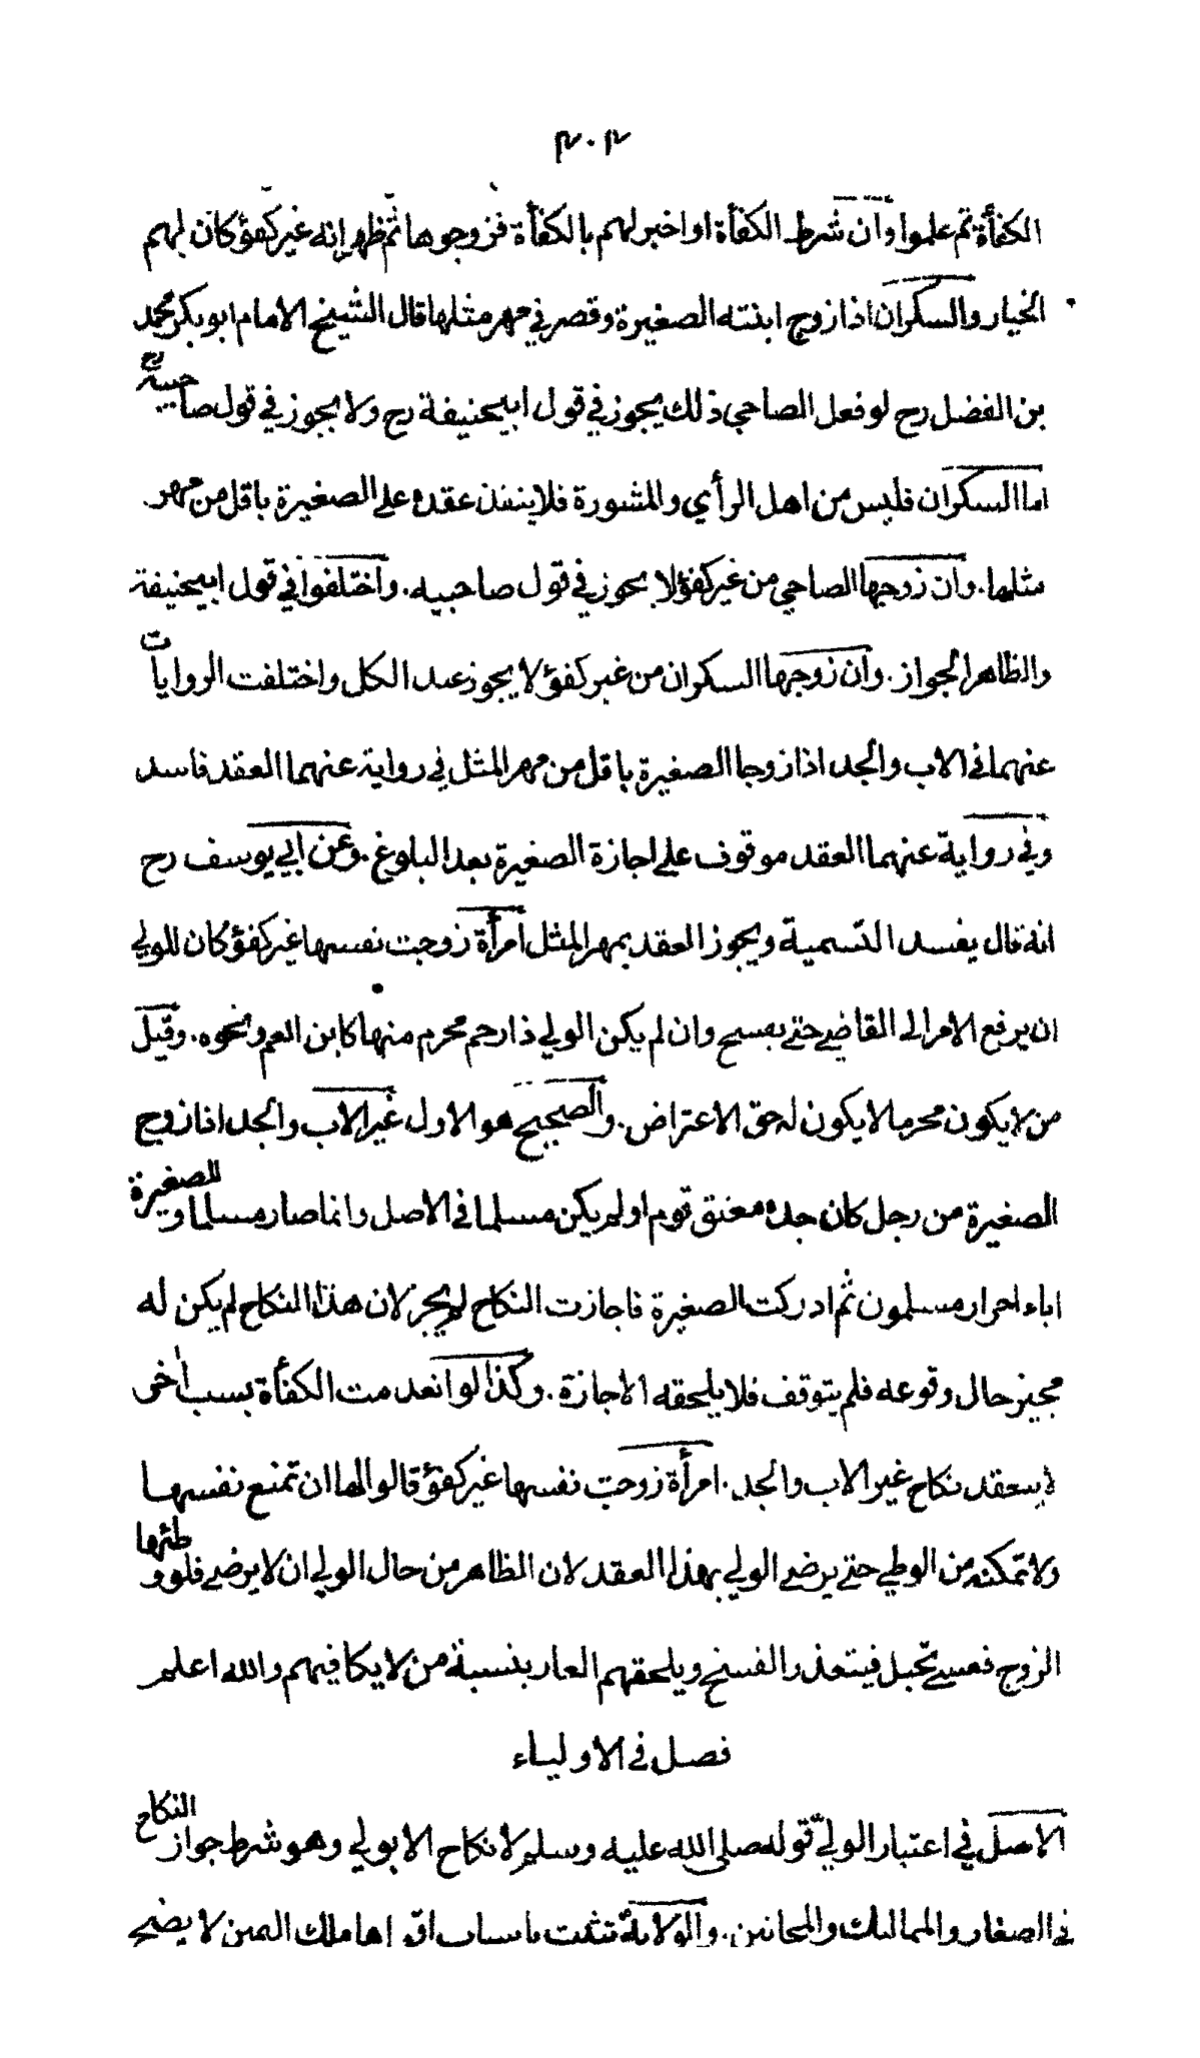 ٣٠٣
الكفأة ثم علموا وان شرط الكفأة او اخبر لهم بالكفأة فزوجوها ثم ظهر انه غير كفؤ كان لهم
الخيار والسكران اذا زوج ابنته الصغيرة وقصر في مهر مثلها قال الشيخ الامام ابو بكر محمد
بن الفضل رح لو فعل الصاحي ذلك يجوز في قول ابيحنيفة رح ولا يجوز في قول صاحبيه رح
اما السكران فليس من اهل الرأي والمشورة فلا ينفذ عقده على الصغيرة باقل من مهر
مثلها. وان زوجها الصاحي من غير كفؤ لا يجوز في قول صاحبيه. واختلفوا في قول ابيحنيفة
والظاهر الجواز. وان زوجها السكران من غير كفؤ لا يجوز عند الكل واختلفت الروايات
عنهما في الاب والجد اذا زوجا الصغيرة باقل من مهر المثل في رواية عنهما العقد فاسد
وفي رواية عنهما العقد موقوف على اجازة الصغيرة بعد البلوغ. وعن ابي يوسف رح
انه قال يفسد التسمية ويجوز العقد بمهر المثل امرأة زوجت نفسها غير كفؤ كان للولي
ان يرفع الامر الى القاضي حتى يفسخ وان لم يكن الولي ذا رحم محرم منها كابن العم ونحوه. وقيل
من لا يكون محرما لا يكون له حق الاعتراض. والصحيح هو الاول غير الاب والجد اذا زوج
الصغيرة من رجل كان جده معتق قوم او لم يكن مسلما في الاصل وانما صار مسلما وللصغيرة
اباء احرار مسلمون ثم ادركت الصغيرة فاجازت النكاح لم يجز لان هذا النكاح لم يكن له
مجيز حال وقوعه فلم يتوقف فلا يلحقه الاجازة. وكذا لو انعدمت الكفأة بسبب اخر
لا ينعقد نكاح غير الاب والجد. امرأة زوجت نفسها غير كفؤ قالوا لها ان تمنع نفسها
ولا تمكنه من الوطي حتى يرضى الولي بهذا العقد لان الظاهر من حال الولي ان لا يرضى فلو وطئها
الزوج فعسى تحبل فيتعذر الفسخ ويلحقهم العار بنسبة من لا يكافيهم والله اعلم
فصل في الاولياء
الاصل في اعتبار الولي قوله صلى الله عليه وسلم لا نكاح الا بولي وهو شرط جواز النكاح
في الصغار والمماليك والمجانين. والولاية تثبت باسباب اقواها ملك اليمين لا يصح